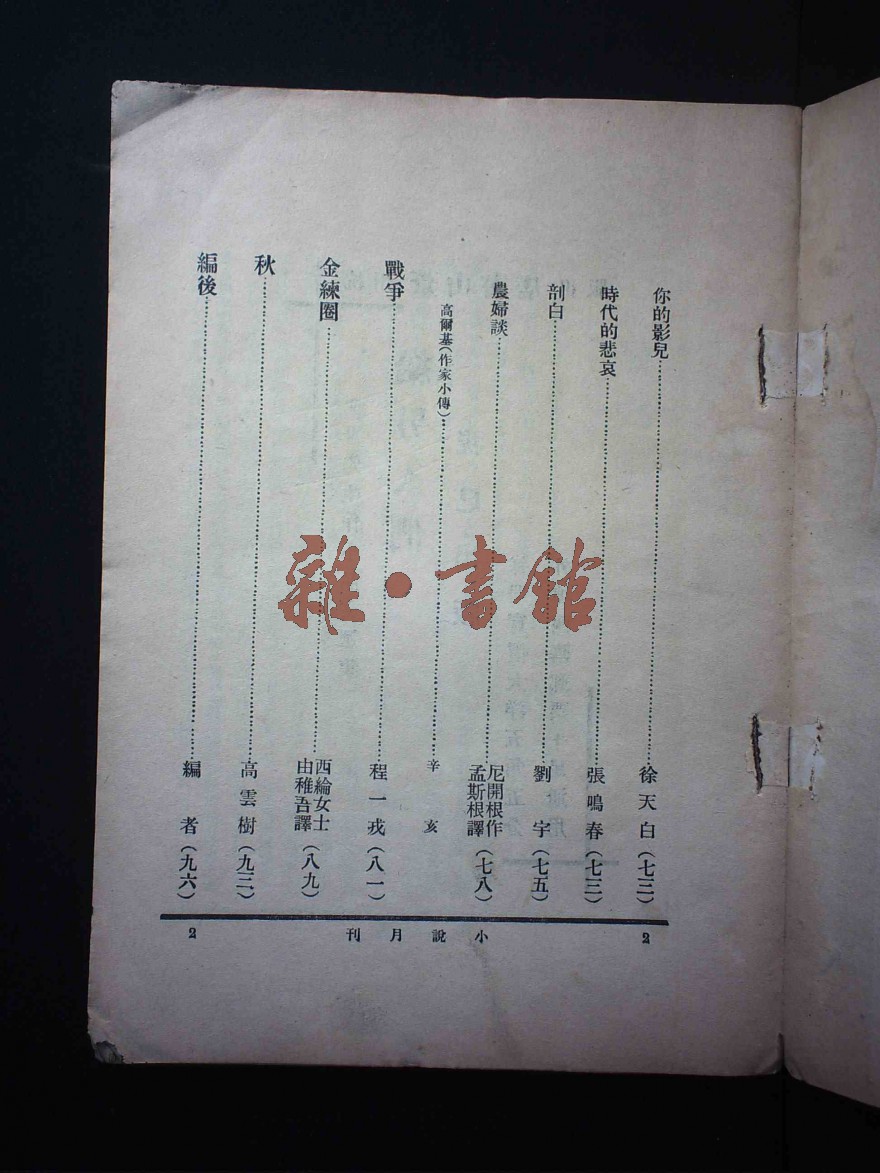 你的影兒 徐天白(七三)
時代的悲哀 張鳴春(七三)
剖白 劉宇(七五)
農婦談 尼開根作 孟斯根譯(七八)
高爾基(作家小傳) 辛亥
戰爭 程一戎(八一)
金練圈 西綸女士 由稚吾譯(八九)
秋 高雲樹(九三)
編後 編者(九六)
2 刊月說小 2
雜·書館